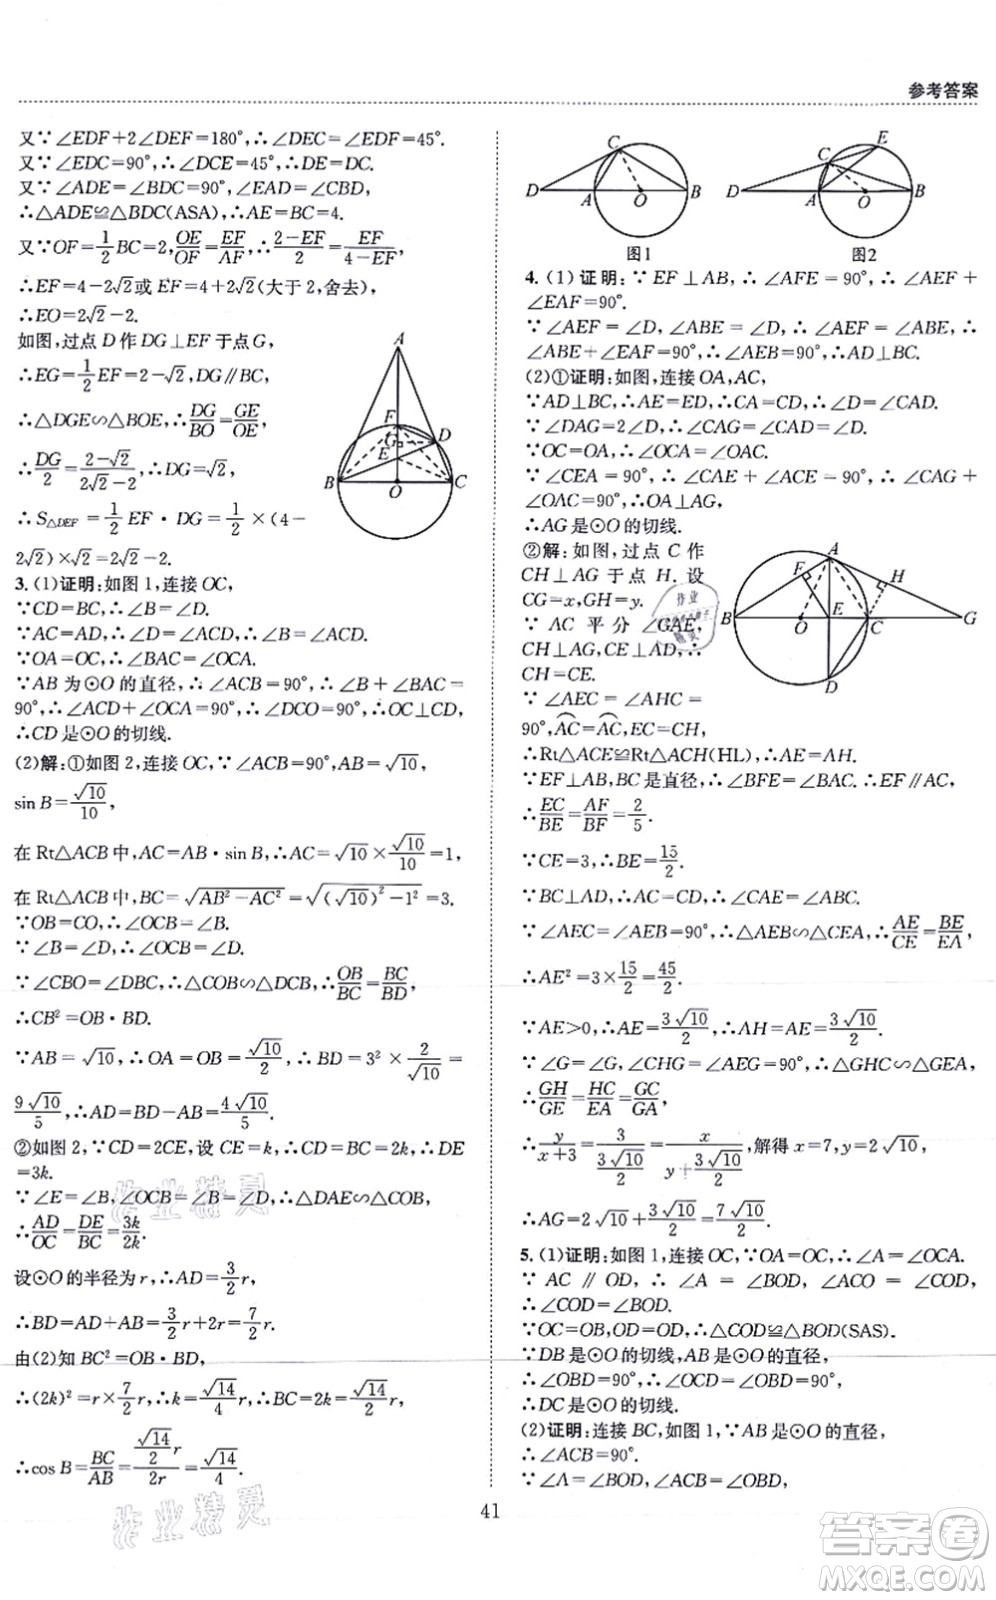 参考答案
又∵∠EDF+2∠DEF=180°,∴∠DEC=∠DEF=45°.
又∵∠EDC=90°,∴∠DCE=45°,∴DE=DC.
又∵∠ADE=∠BDC=90°,∠EAD=∠CBD,
∴△ADE≌△BDC(ASA),∴AE=BC=4.
又∵OF=1/2BC=2,OE/OF=EF/AF,∴(2-EF)/2=EF/(4-EF),
∴EF=4-2√2或EF=4+2√2(大于2,舍去),
∴EO=2√2-2.
如图,过点D作DG⊥EF于点G,
∴EG=1/2EF=2-√2,DG∥BC,
∴△DGE∽△BOE,∴DG/BO=GE/OE,
∴DG/2=(2-√2)/(2√2-2),∴DG=√2,
∴S△DEF=1/2EF·DG=1/2×(4-
2√2)×√2=2√2-2.
A
F
G
D
E
B
O
C
3.(1)证明:如图1,连接OC,
∵CD=BC,∴∠B=∠D.
∵AC=AD,∴∠D=∠ACD,∴∠B=∠ACD.
∵OA=OC,∴∠BAC=∠OCA.
∵AB为⊙O的直径,∴∠ACB=90°,∴∠B+∠BAC=
90°,∴∠ACD+∠OCA=90°,∴∠DCO=90°,∴OC⊥CD,
∴CD是⊙O的切线.
(2)解:①如图2,连接OC,∵∠ACB=90°,AB=√10,
sinB=√10/10,
在Rt△ACB中,AC=AB·sinB,∴AC=√10×√10/10=1,
在Rt△ACB中,BC=√(AB²-AC²)=√((√10)²-1²)=3.
∵OB=CO,∴∠B=∠OCB.
∵∠B=∠D,∴∠OCB=∠D.
∵∠CBO=∠DBC,∴△CBO∽△DBC,∴OB/BC=BC/BD,
∴CB²=OB·BD.
∵AB=√10,∴OA=OB=√10/2,∴BD=3²×2/√10=
9√10/5,∴AD=BD-AB=4√10/5.
②如图2,∵CD=2CE,设CE=k,∴CD=BC=2k,∴DE
=3k.
∵∠E=∠B,∠OCB=∠B=∠D,∴△DAE∽△COB,
∴AD/OC=DE/BC=3k/2k.
设⊙O的半径为r,∴AD=3/2r,
∴BD=AD+AB=3/2r+2r=7/2r.
由(2)知BC²=OB·BD,
∴(2k)²=r×7/2r,∴k=√14/4r,∴BC=2k=√14/2r,
∴cosB=BC/AB=(√14/2r)/2r=√14/4.
D
A
C
O
B
图1
D
A
C
E
O
B
图2
4.(1)证明:∵EF⊥AB,∴∠AFE=90°,∴∠AEF+
∠EAF=90°.
∵∠AEF=∠D,∠ABE=∠D,∴∠ABE=∠AEF,∴
∠ABE+∠EAF=90°,∴∠AEB=90°,∴AD⊥BC.
(2)①证明:如图,连接OA,AC,
∵AD⊥BC,∴AE=ED,∴CA=CD,∴∠D=∠CAD.
∵∠DAG=2∠D,∴∠CAG=∠CAD.
∵OC=OA,∴∠OCA=∠OAC.
∵∠CEA=90°,∴∠CAE+∠ACE=90°,∴∠CAG+
∠OAC=90°,∴OA⊥AG,
∴AG是⊙O的切线.
②解:如图,过点C作
CH⊥AG于点H.设
CG=x,GH=y.
∵AC平分∠GAE,
CH⊥AG,CE⊥AD,∴
CH=CE.
∵∠AEC=∠AHC=
90°,AC=AC,EC=CH,
A
F
H
B
O
E
C
G
D
∴Rt△ACE≌Rt△ACH(HL),∴AE=AH.
∵EF⊥AB,BC是直径,∴∠BFE=∠BAC,∴EF∥AC,
∴EC/BE=AF/BF=2/5.
∵CE=3,∴BE=15/2.
∵BC⊥AD,∴AC=CD,∴∠CAE=∠ABC.
∵∠AEC=∠AEB=90°,∴△AEB∽△CEA,∴AE/CE=BE/EA,
∴AE²=3×15/2=45/2.
∵AE>0,∴AE=3√10/2,∴AH=AE=3√10/2.
∵∠G=∠G,∠CHG=∠AEG=90°,∴△GHC∽△GEA,
∴GH/GE=HC/EA=GC/GA,
∴y/(x+3)=3/(3√10/2)=x/(y+3√10/2),解得x=7,y=2√10,
∴AG=2√10+3√10/2=7√10/2.
5.(1)证明:如图1,连接OC,∵OA=OC,∴∠A=∠OCA.
∵AC∥OD,∴∠A=∠BOD,∠ACO=∠COD,
∴∠COD=∠BOD.
∵OC=OB,OD=OD,∴△COD≌△BOD(SAS).
∵DB是⊙O的切线,AB是⊙O的直径,
∴∠OBD=90°,∴∠OCD=∠OBD=90°,
∴DC是⊙O的切线.
(2)证明:连接BC,如图1,∵AB是⊙O的直径,
∴∠ACB=90°.
∵∠A=∠BOD,∠ACB=∠OBD,
41
作业精灵
作业精灵
答案卷
MXQE.COM